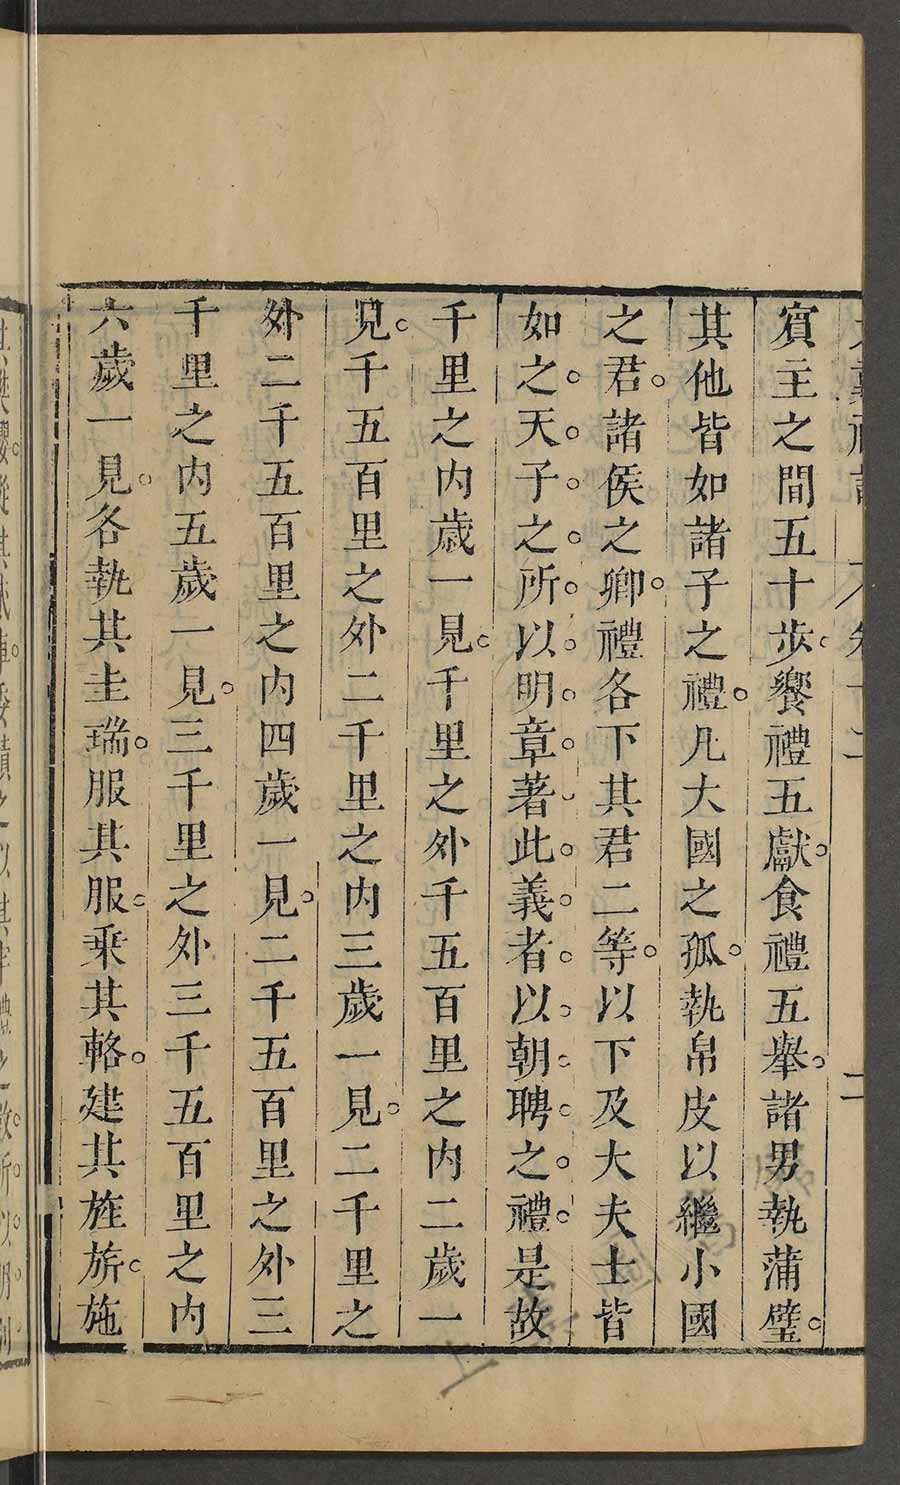 賔主之間五十歩。饗禮五獻。食禮五舉。諸男執蒲璧。
其他皆如諸子之禮。凡大國之孤。執帛皮以繼小國
之君。諸侯之卿。禮各下其君二等。以下及大夫士皆
如之。天。子。之。所。以。明。章。著、此。義。者。以。朝。聘。之。禮。是故
千里之内歲一見。千里之外千五百里之内二歲一
見。千五百里之外二千里之内三歲一見。二千里之
外二千五百里之内四歲一見。二千五百里之外三
千里之内五歲一見。三千里之外三千五百里之内
六歲一見。各執其圭瑞。服其服。乗其輅。建其旌旂。施